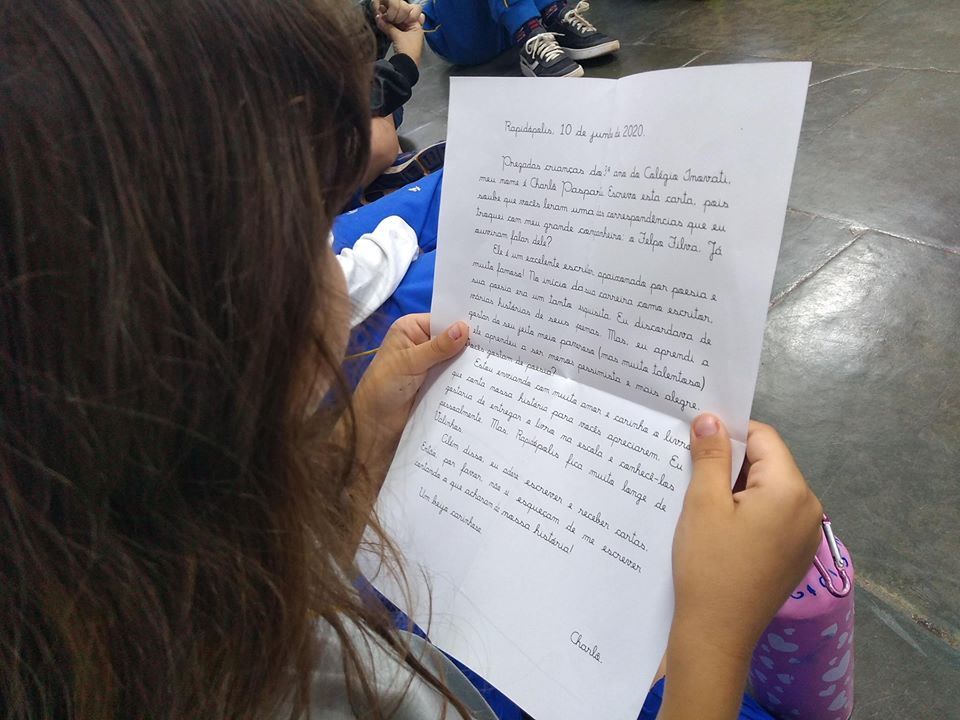 Rapidópolis, 10 de junho de 2020.
Prezadas crianças do 3º ano do Colégio Inovati,
meu nome é Charlô Paspartu. Escrevo esta carta, pois
soube que vocês leram uma das correspondências que eu
troquei com meu grande companheiro: o Felpo Filva. Já
ouviram falar dele?
Ele é um excelente escritor apaixonado por poesia e
muito famoso! No início da sua carreira como escritor,
sua poesia era um tanto esquisita. Eu discordava de
várias histórias de seus poemas. Mas, eu aprendi a
gostar do seu jeito meio (mas muito talentoso)
e ele aprendeu a ser menos pessimista e mais alegre.
Vocês gostam de poesia?
Estou enviando com muito amor e carinho o livro
que conta nossa história para vocês apreciarem. Eu
gostaria de entregar o livro na escola e conhecê-los
pessoalmente. Mas, Rapidópolis fica muito longe de
Valinhos.
Além disso, eu adoro escrever e receber cartas.
Então, por favor, não se esqueçam de me escrever
contando o que acharam da nossa história!
Um beijo carinhoso
Charlô.